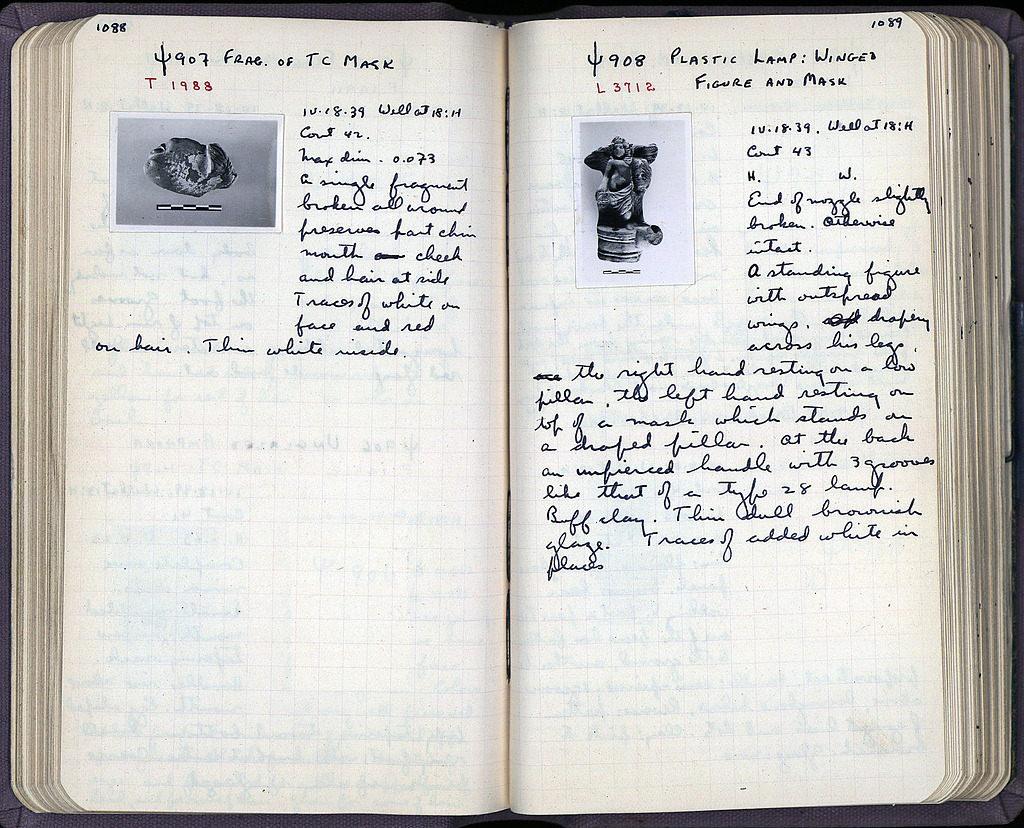 1088
Ψ907 FRAG. OF TC MASK
T 1988
IV.18.39 Well at 18:H
Cont 42.
Max dim. 0.073
A single fragment
broken all around
preserves part chin
mouth cheek
and hair at side
Traces of white on
face and red
on hair. Thin white inside.
1089
Ψ908 PLASTIC LAMP: WINGED
FIGURE AND MASK
L 3712
IV.18.39. Well at 18:H
Cont 43
H. W.
End of nozzle slightly
broken. Otherwise
intact.
A standing figure
with outspread
wings, drapery
across his legs,
the right hand resting on a low
pillar, the left hand resting on
top of a mask which stands on
a draped pillar. At the back
an unpierced handle with 3 grooves
like that of a type 28 lamp.
Buff clay. Thin dull brownish
glaze. Traces of added white in
places